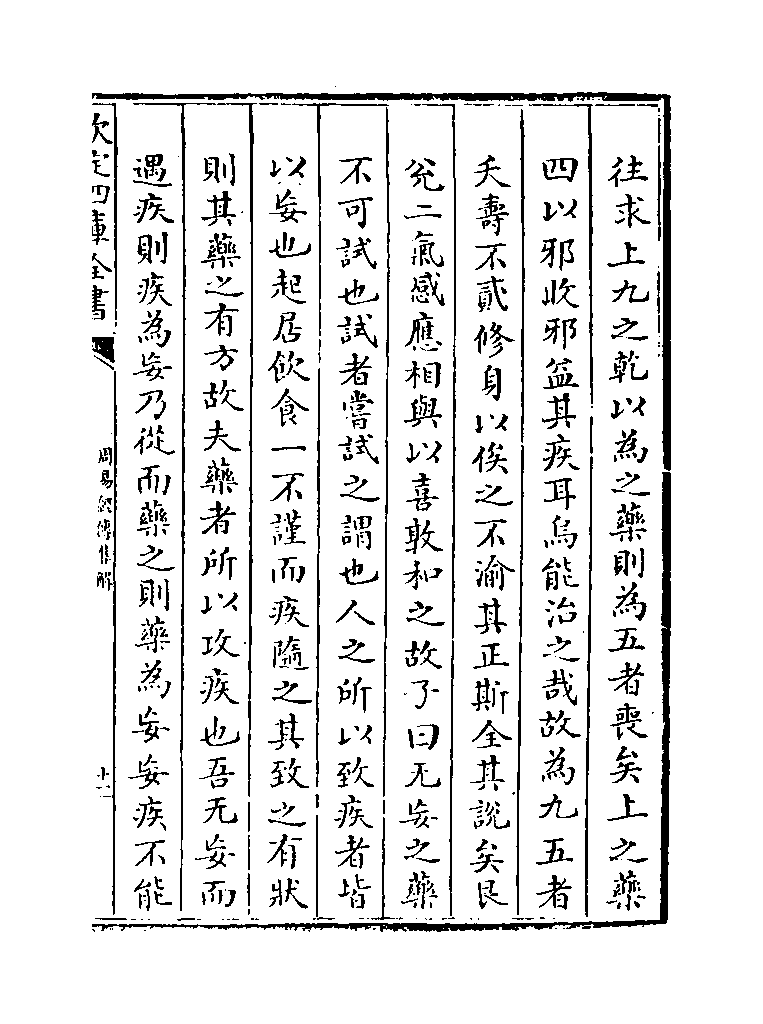 往求上九之乾以為之藥則為五者喪矣上之藥
四以邪攻邪益其疾耳烏能治之哉故為九五者
夭壽不貳修身以俟之不渝其正斯全其說矣艮
兊二氣感應相與以喜敢和之故子曰无妄之藥
不可試也試者嘗試之謂也人之所以致疾者皆
以妄也起居飲食一不謹而疾隨之其致之有狀
則其藥之有方故夫藥者所以攻疾也吾无妄而
遇疾則疾為妄乃從而藥之則藥為妄妄疾不能
欽定四庫全書
周易經傳集解
十一